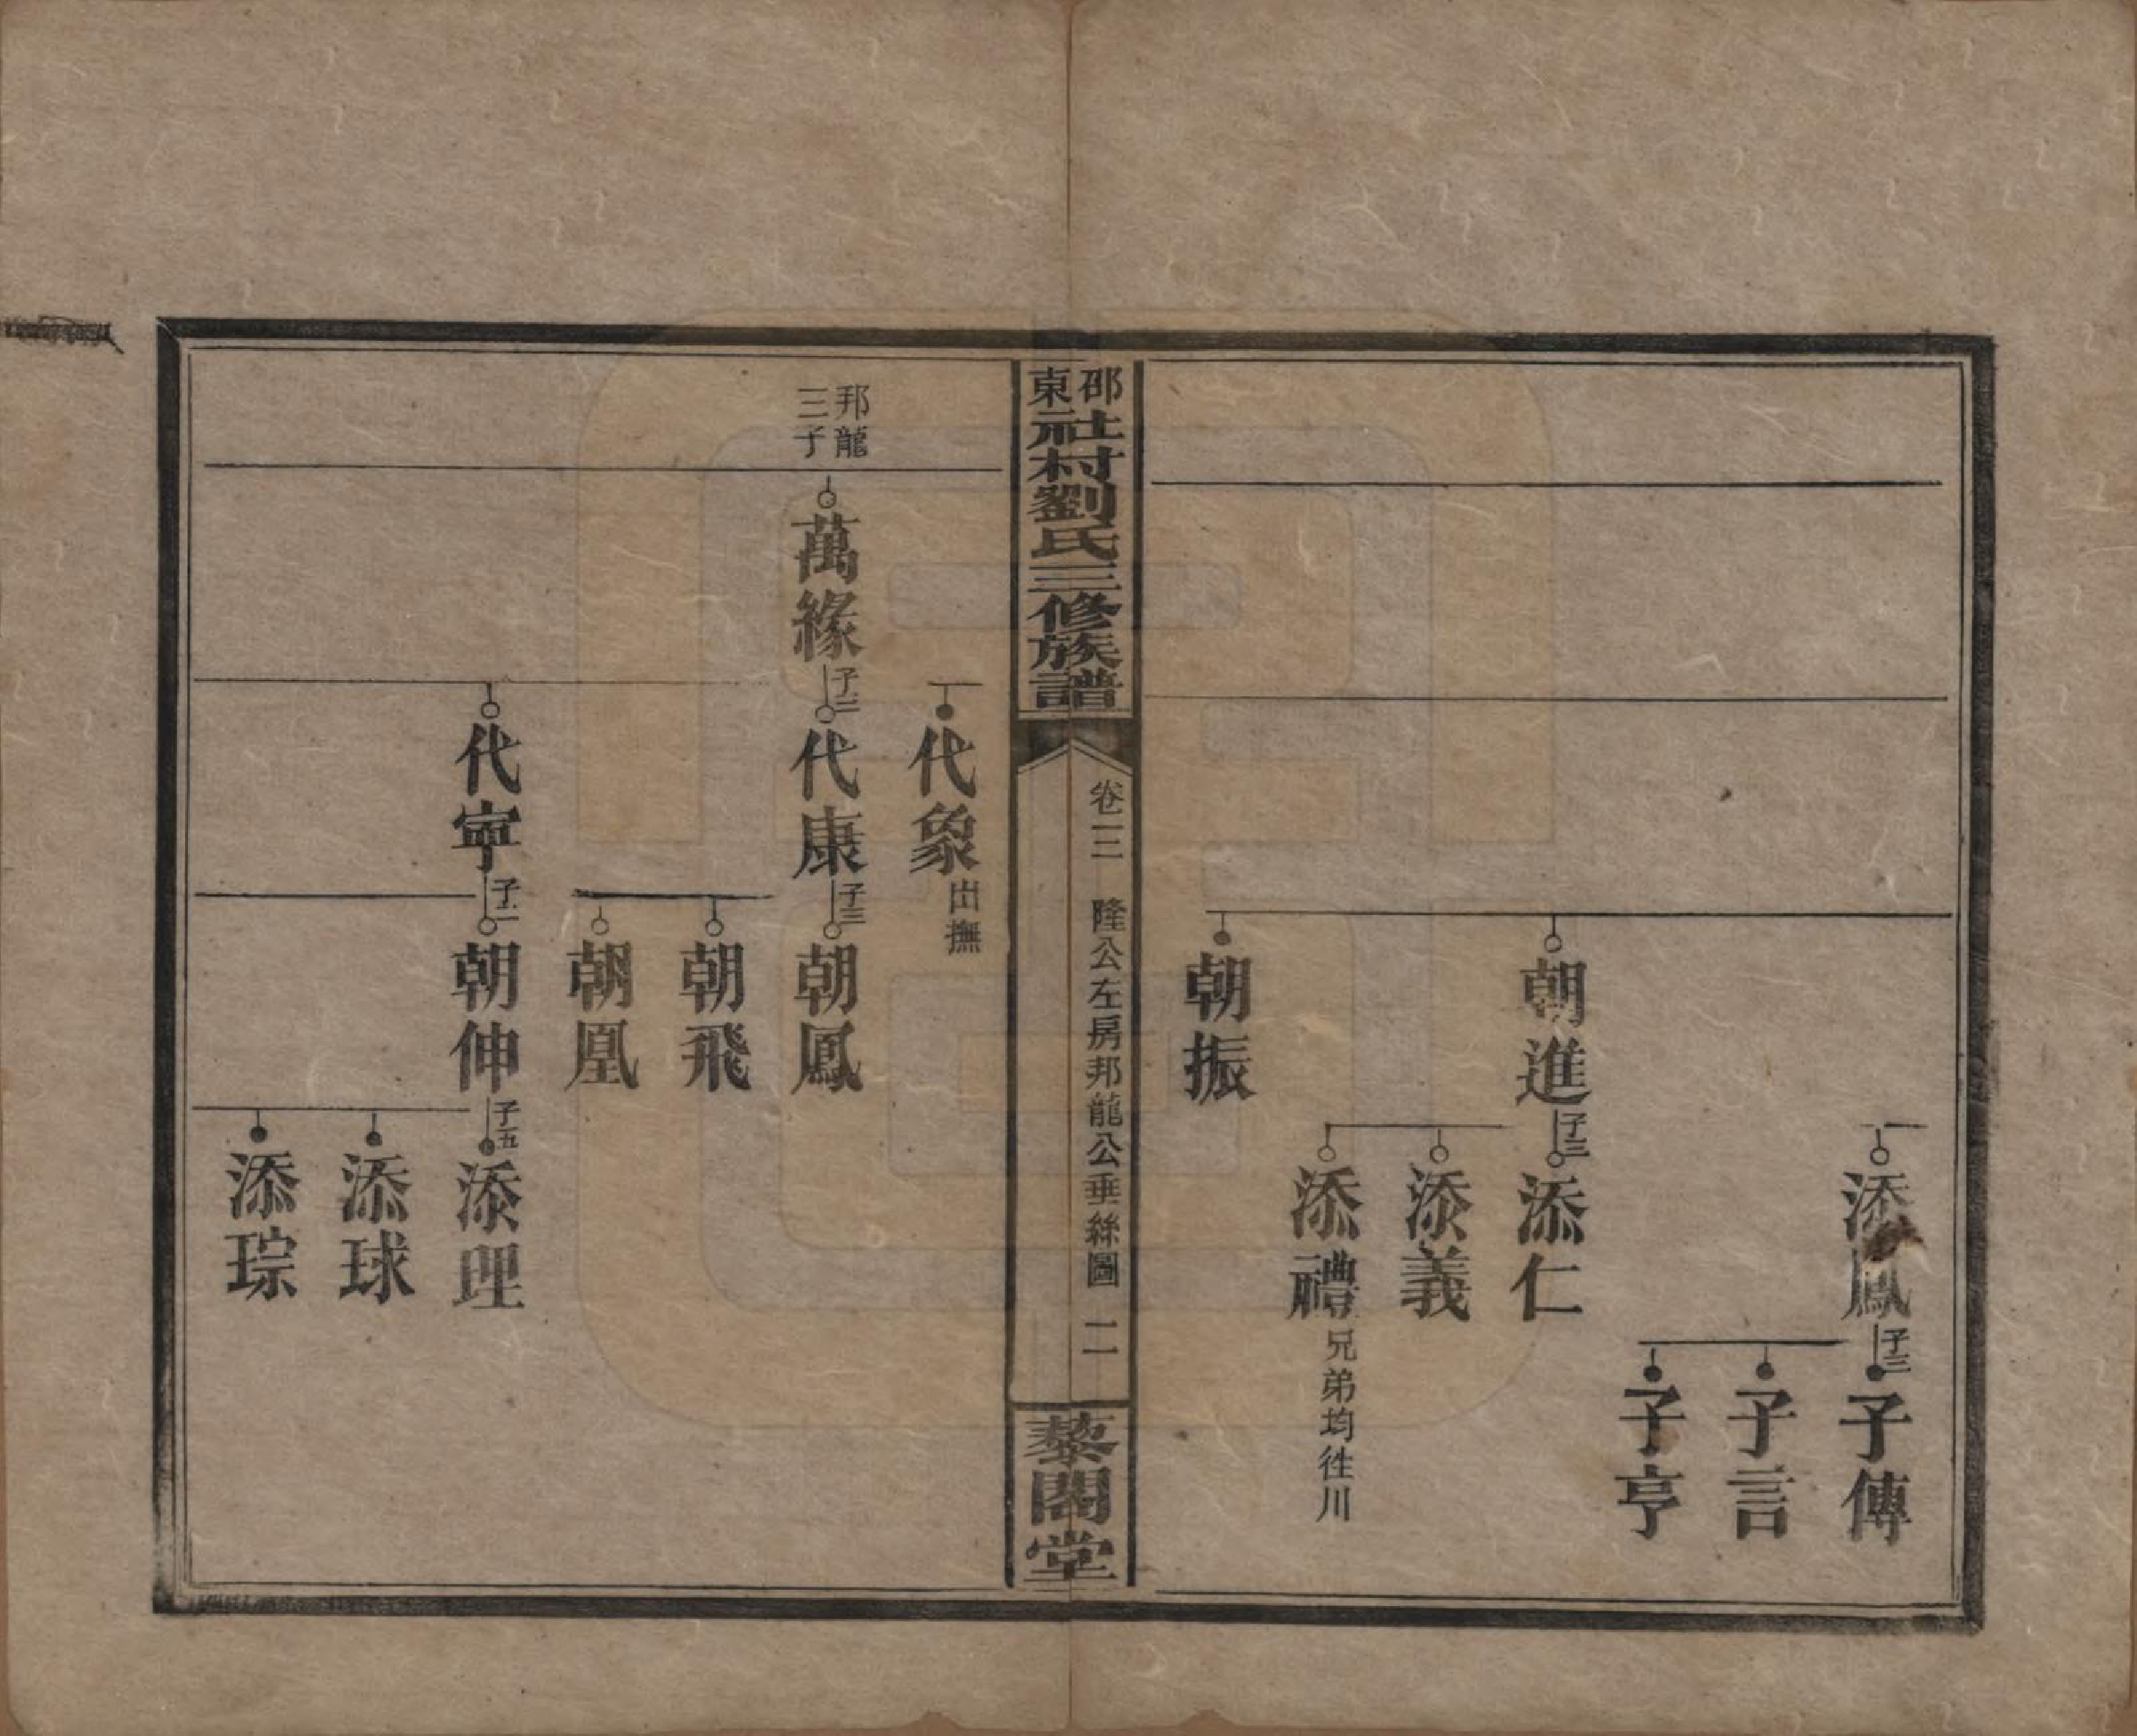 添鳳子三
子傳
子言
子亨
朝進子三
添仁
添義
添禮兄弟均徃川
朝振
邵東社村劉氏三修族譜
卷三 隆公左房邦龍公垂絲圖 二
藜閣堂
代象出撫
邦龍三子
萬緣子二
代康子三
朝鳳
朝飛
朝凰
代寧子二
朝伸子五
添理
添球
添琮